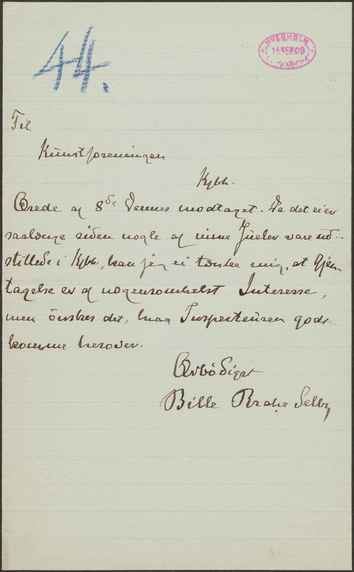 44.
HVEDHOLM
Til
Kunstforeningen
Kjbh.
Brede af 8de dennes modtaget. Da det ei er
saalænge siden nogle af mine Jueler vare ud-
stillede i Kjbh., kan jeg ei tænke mig, at Gjen
tagelse er af nogensomhelst Interesse,
men önskes det, kan Inspecteuren godt
komme herover.
Ærbödigst
Bille Brahe Selby